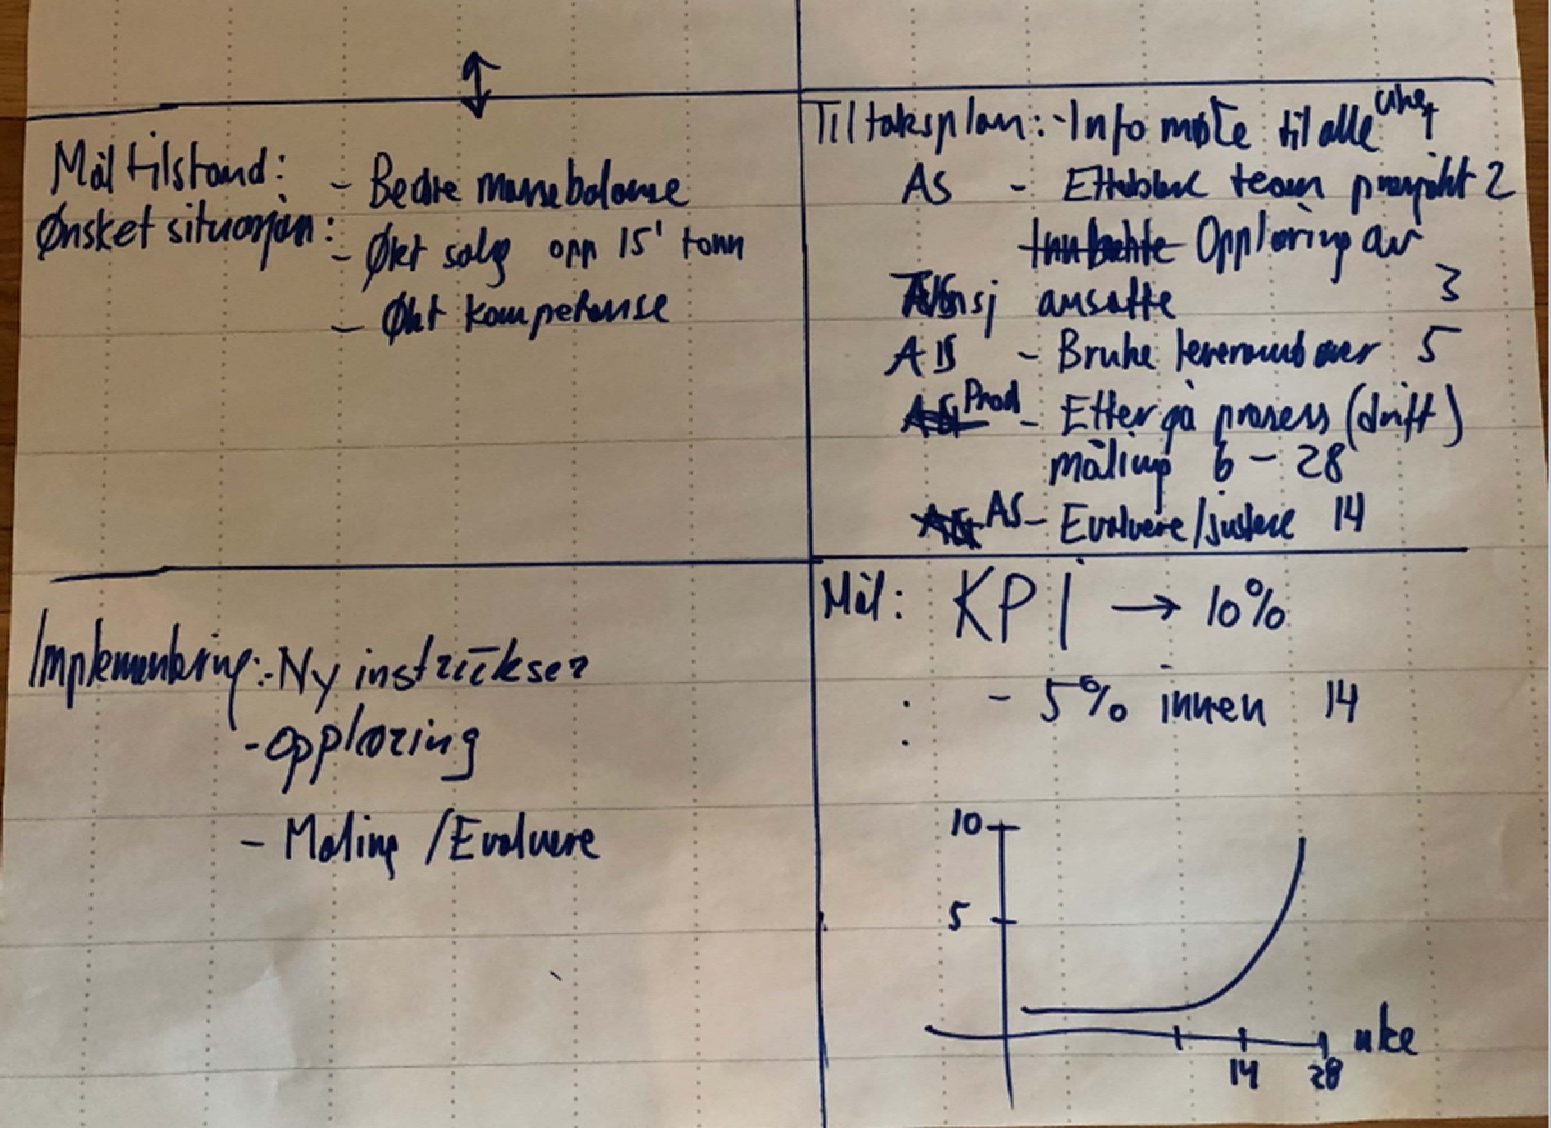 Måltilstand: - Bedre massebalanse
Ønsket situasjon: - Økt salg opp 15' tonn
- Økt kompetanse
Tiltaksplan: - Info møte til alle uke
AS - Etablere team prosjekt 2
Opplæring av
ansatte 3
AB - Bruke leverandører 5
Prod - Ettergå prosess (drift)
måling 6 - 28
AS - Evaluere/justere 14
Implementering: - Ny instrukser
- opplæring
- Måling / Evaluere
Mål: KPI → 10%
- 5% innen 14
10
5
14 28 uke